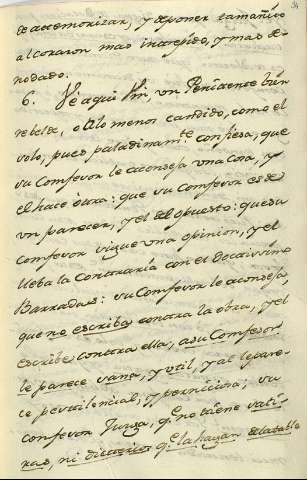 de attemorizar, y deponer tamañito
al corazon mas intrepido, y mas de-
nodado.
6. Ve aqui Vm, un Penitente bien
rebelde, o alo menos candido, como el
solo, pues paladinam.te confiesa, que
su Comfesor le aconseja una Cosa, y
el hace otra: que su Comfesor es de
un parecer, y el del opuesto: que su
Comfesor sigue una opinion, y el
lleba la Contraria con el Docaissimo
Barradas: su Comfesor le aconseja,
que no escriba contra la obra, y el
escribe contra ella, a su Comfesor
le parece vana, y util, y al le pare-
ce pestilencial, y perniciosa; su
confesor Juzga, q.e no tiene vati-
nas, ni dicterios q.e la hagan detestable